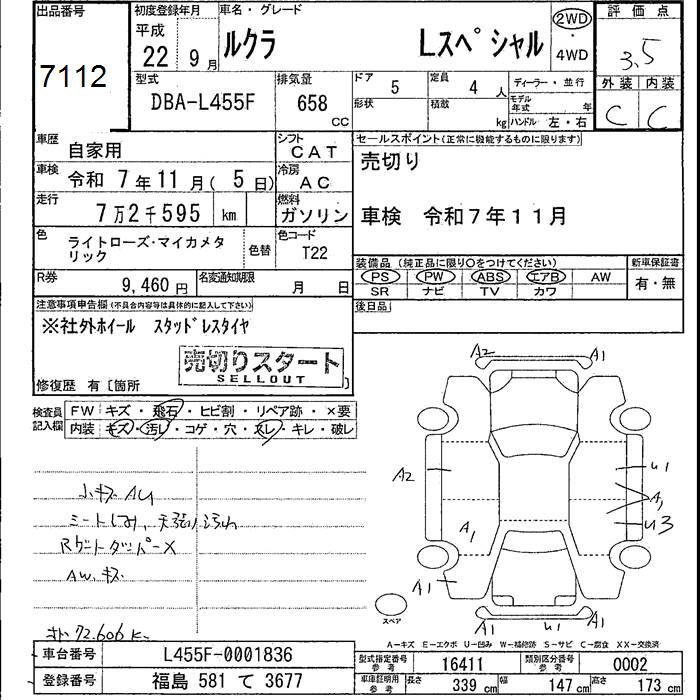 出品番号
7112
初度登録年月
平成
22 9月
車名・グレード
ルクラ Lスペシャル
2WD
・
4WD
評価点
3.5
外装 内装
C C
型式
DBA-L455F
排気量
658
CC
ドア
5
形状
定員
4人
積載
kg
ディーラー・並行
モデル年式 年
ハンドル 左・右
車歴
自家用
シフト
CAT
車検
令和 7年11月(5日)
冷房
AC
走行
7万2千595 km
燃料
ガソリン
色
ライトローズ・マイカメタリック
色替
色コード
T22
R券
9,460円
名変通知期限
月 日
セールスポイント(正常に機能するものに限ります)
売切り
車検 令和7年11月
装備品 (純正品に限り○をつけてください)
PS PW ABS エアB AW
SR ナビ TV カワ
新車保証書
有・無
後日品
注意事項申告欄(不具合内容等は具体的に記入して下さい)
※社外ホイール スタッドレスタイヤ
売切りスタート
SELLOUT
修復歴 有〔箇所 〕
検査員記入欄
FW キズ・飛石・ヒビ割・リペア跡・×要
内装 キズ・汚レ・コゲ・穴・スレ・キレ・破レ
小キズ AU
シートしみ、天張り汚れ
Rゲートダンパー×
AW.キズ
72.606 K
A2 A1
A2
U1
A1
U3
A1
A1
A1 U1 A1
スペア
A-キズ E-エクボ U-凹み W-補修跡 S-サビ C-腐食 XX-交換済
車台番号
L455F-0001836
登録番号
福島 581 て 3677
型式指定番号 参考
16411
類別区分番号 参考
0002
車庫証明用 参考
長さ 339cm 幅 147cm 高さ 173cm